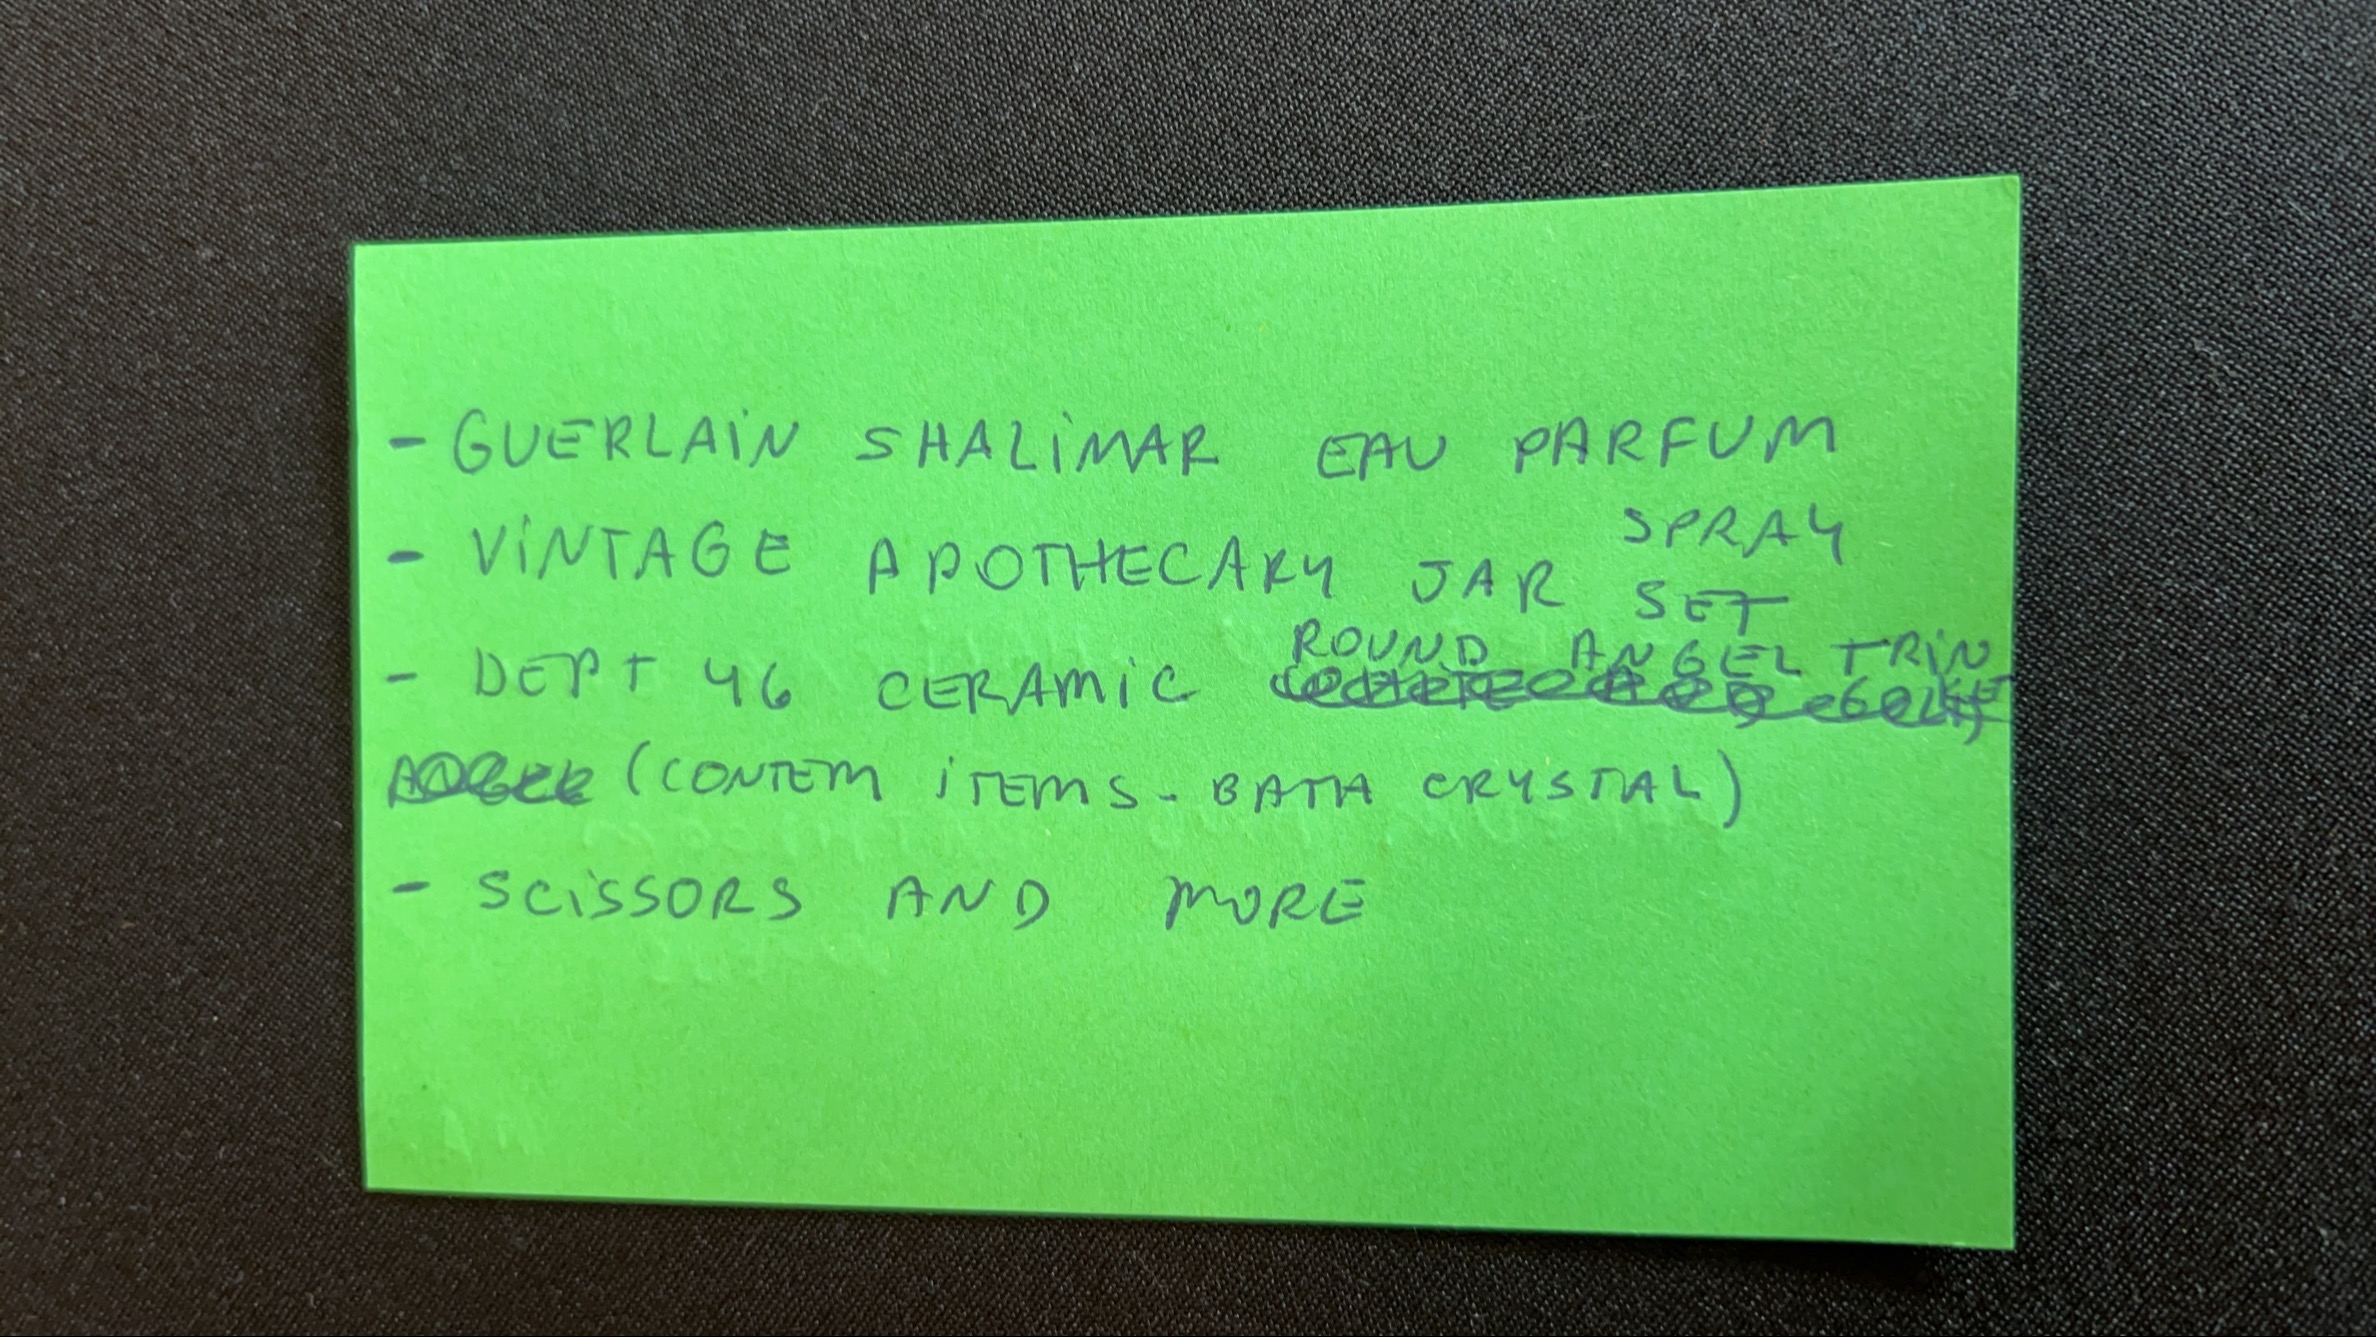 - GUERLAIN SHALIMAR EAU PARFUM
SPRAY
- VINTAGE APOTHECARY JAR SET
ROUND ANGEL TRIN
- DEPT 46 CERAMIC
(CONTEM ITEMS - BATH CRYSTAL)
- SCISSORS AND MORE